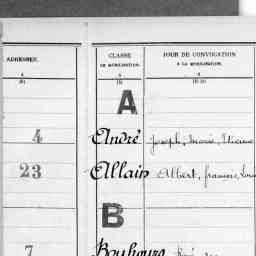 ADRESSES. CLASSE DE MOBILISATION. JOUR DE CONVOCATION A LA MOBILISATION.
4 5 6
A
4 André Joseph, Marie, Etienne
23 Allain Albert, François, Louis
B
7 Bouhours René